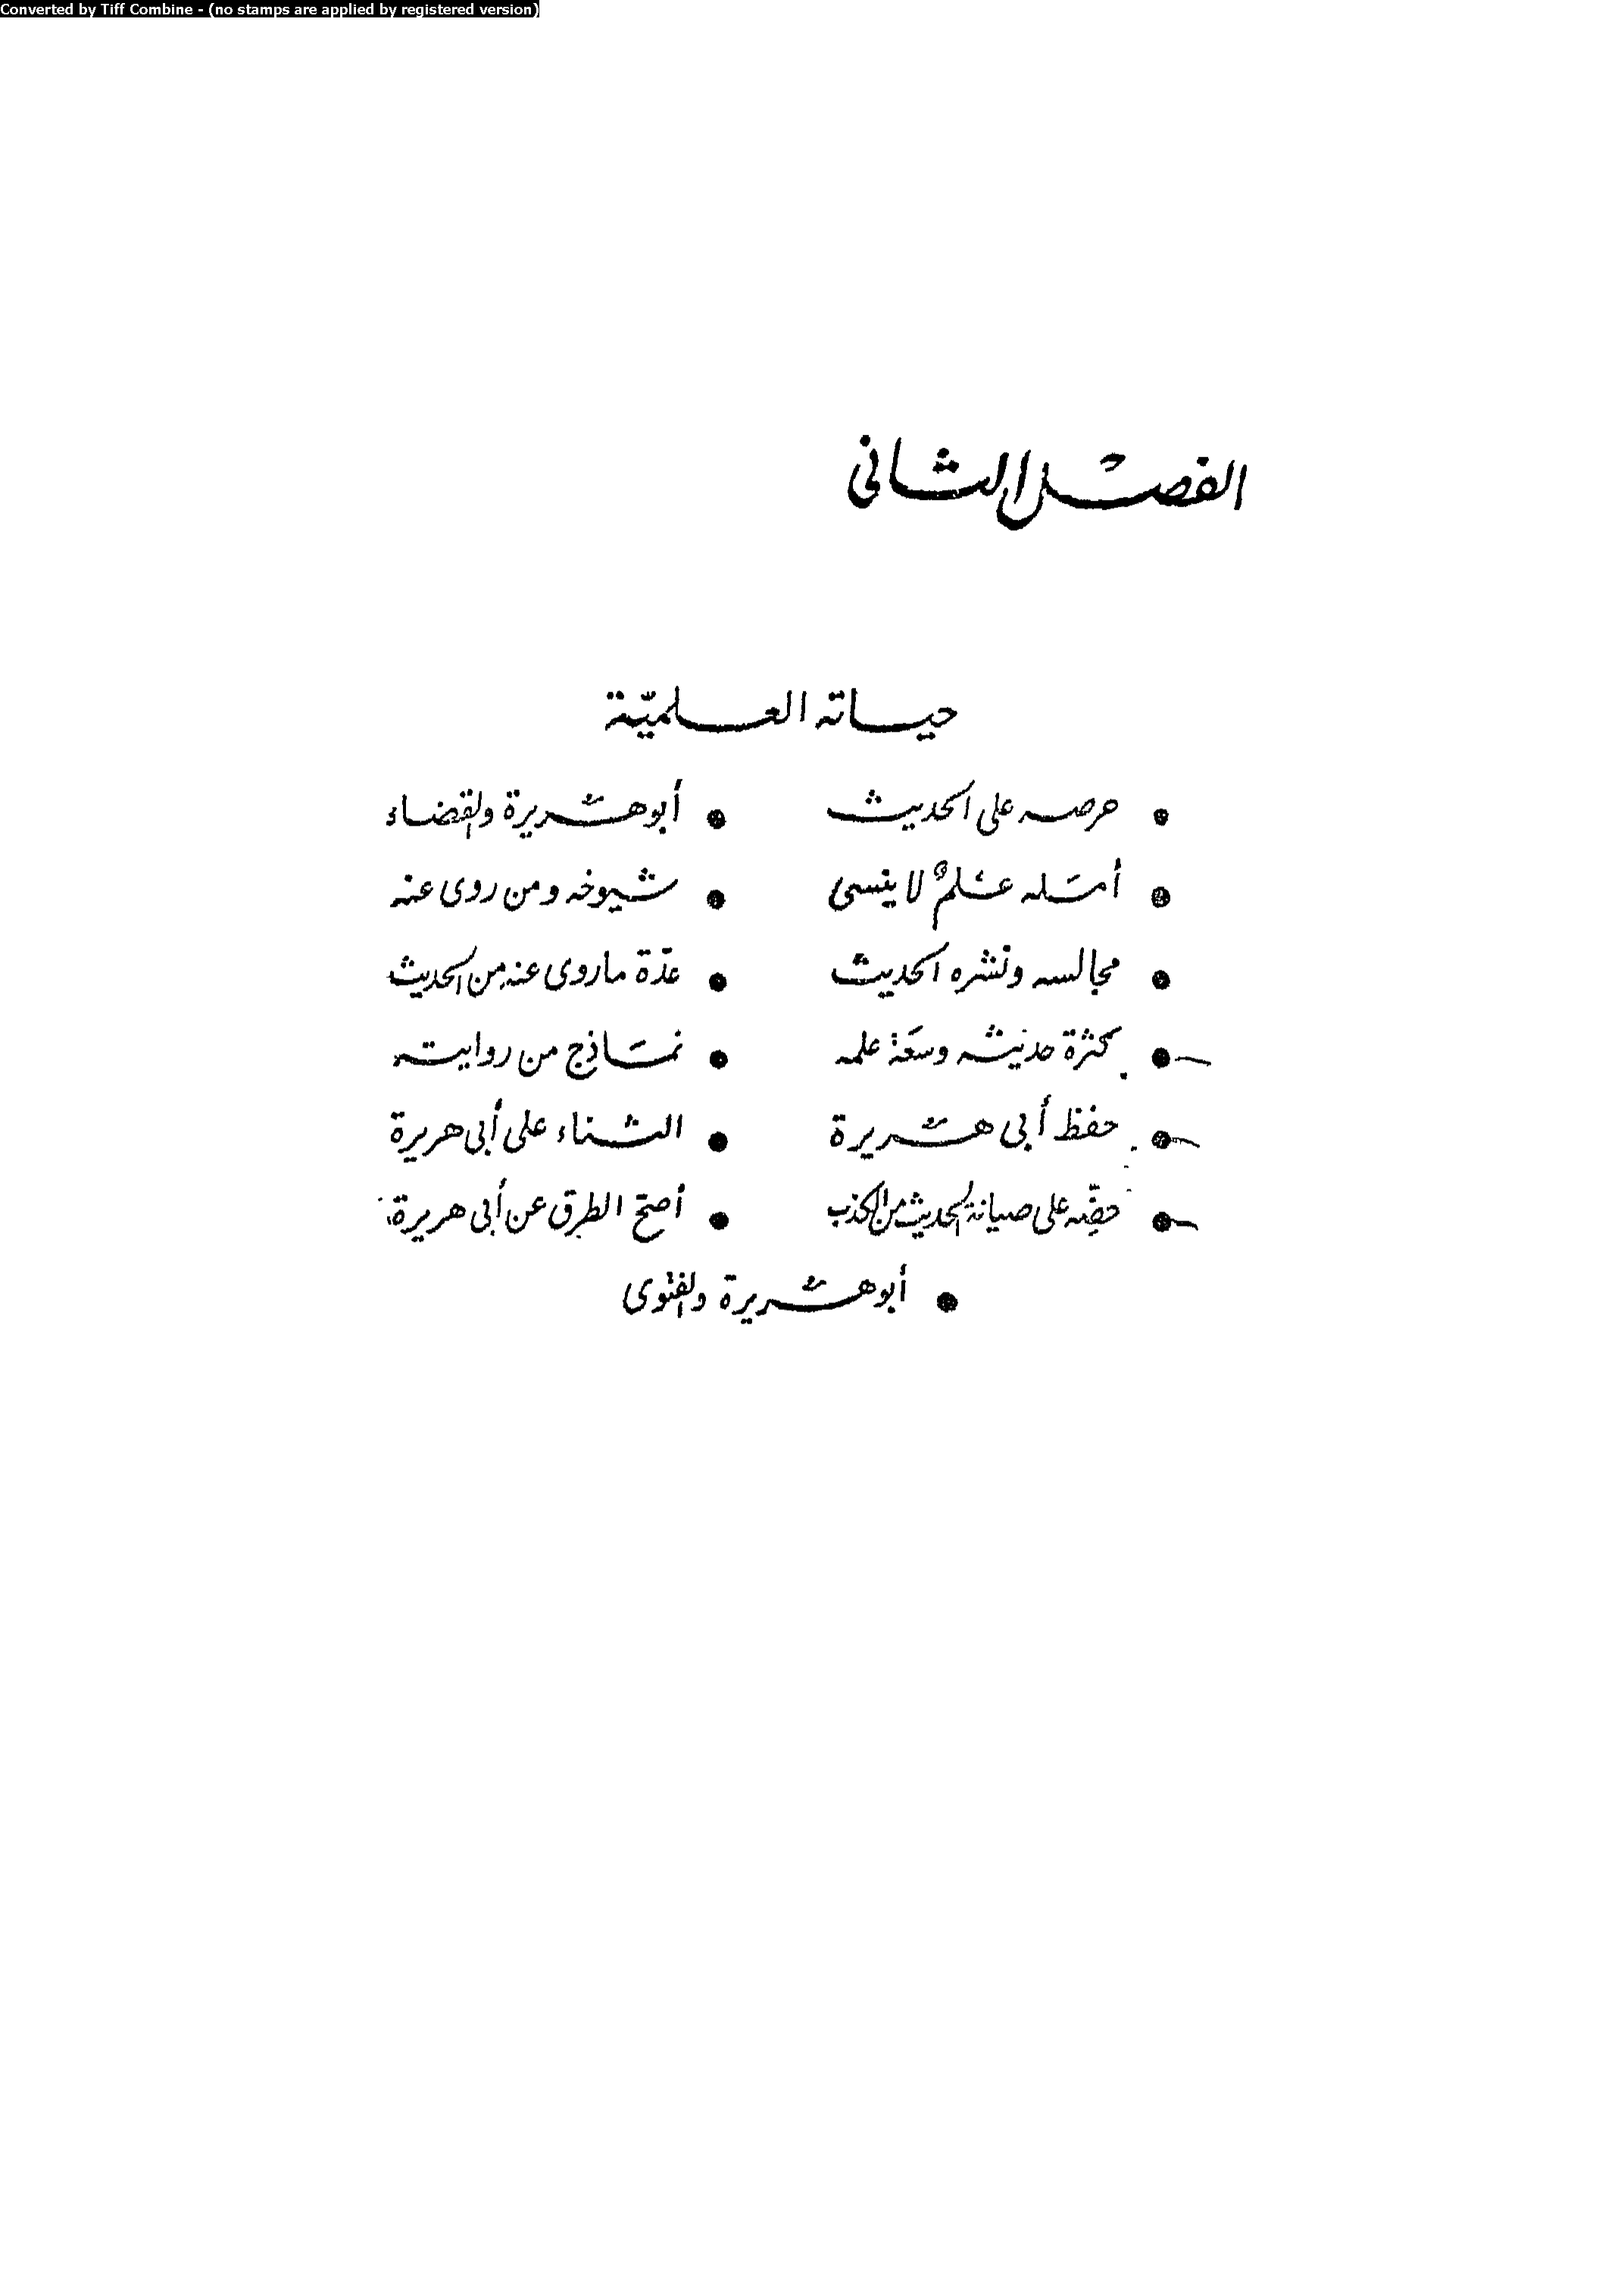 Converted by Tiff Combine - (no stamps are applied by registered version)
الفصل الثاني
حياته العلميّة
• حرصه على الحديث
• أمله علمٌ لا ينسى
• مجالسه ونشره الحديث
• كثرة حديثه وسعة علمه
• حفظ أبي هريرة
• حضّه على صيانة الحديث من الكذب
• أبو هريرة والقضاء
• شيوخه ومن روى عنه
• عدّة ما روى عنه من الحديث
• نماذج من روايته
• الثناء على أبي هريرة
• أصحّ الطرق عن أبي هريرة
• أبو هريرة والفتوى